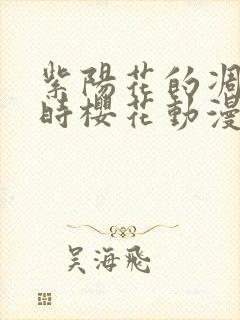 紫陽花的凋
時櫻花動漫
吴海飛